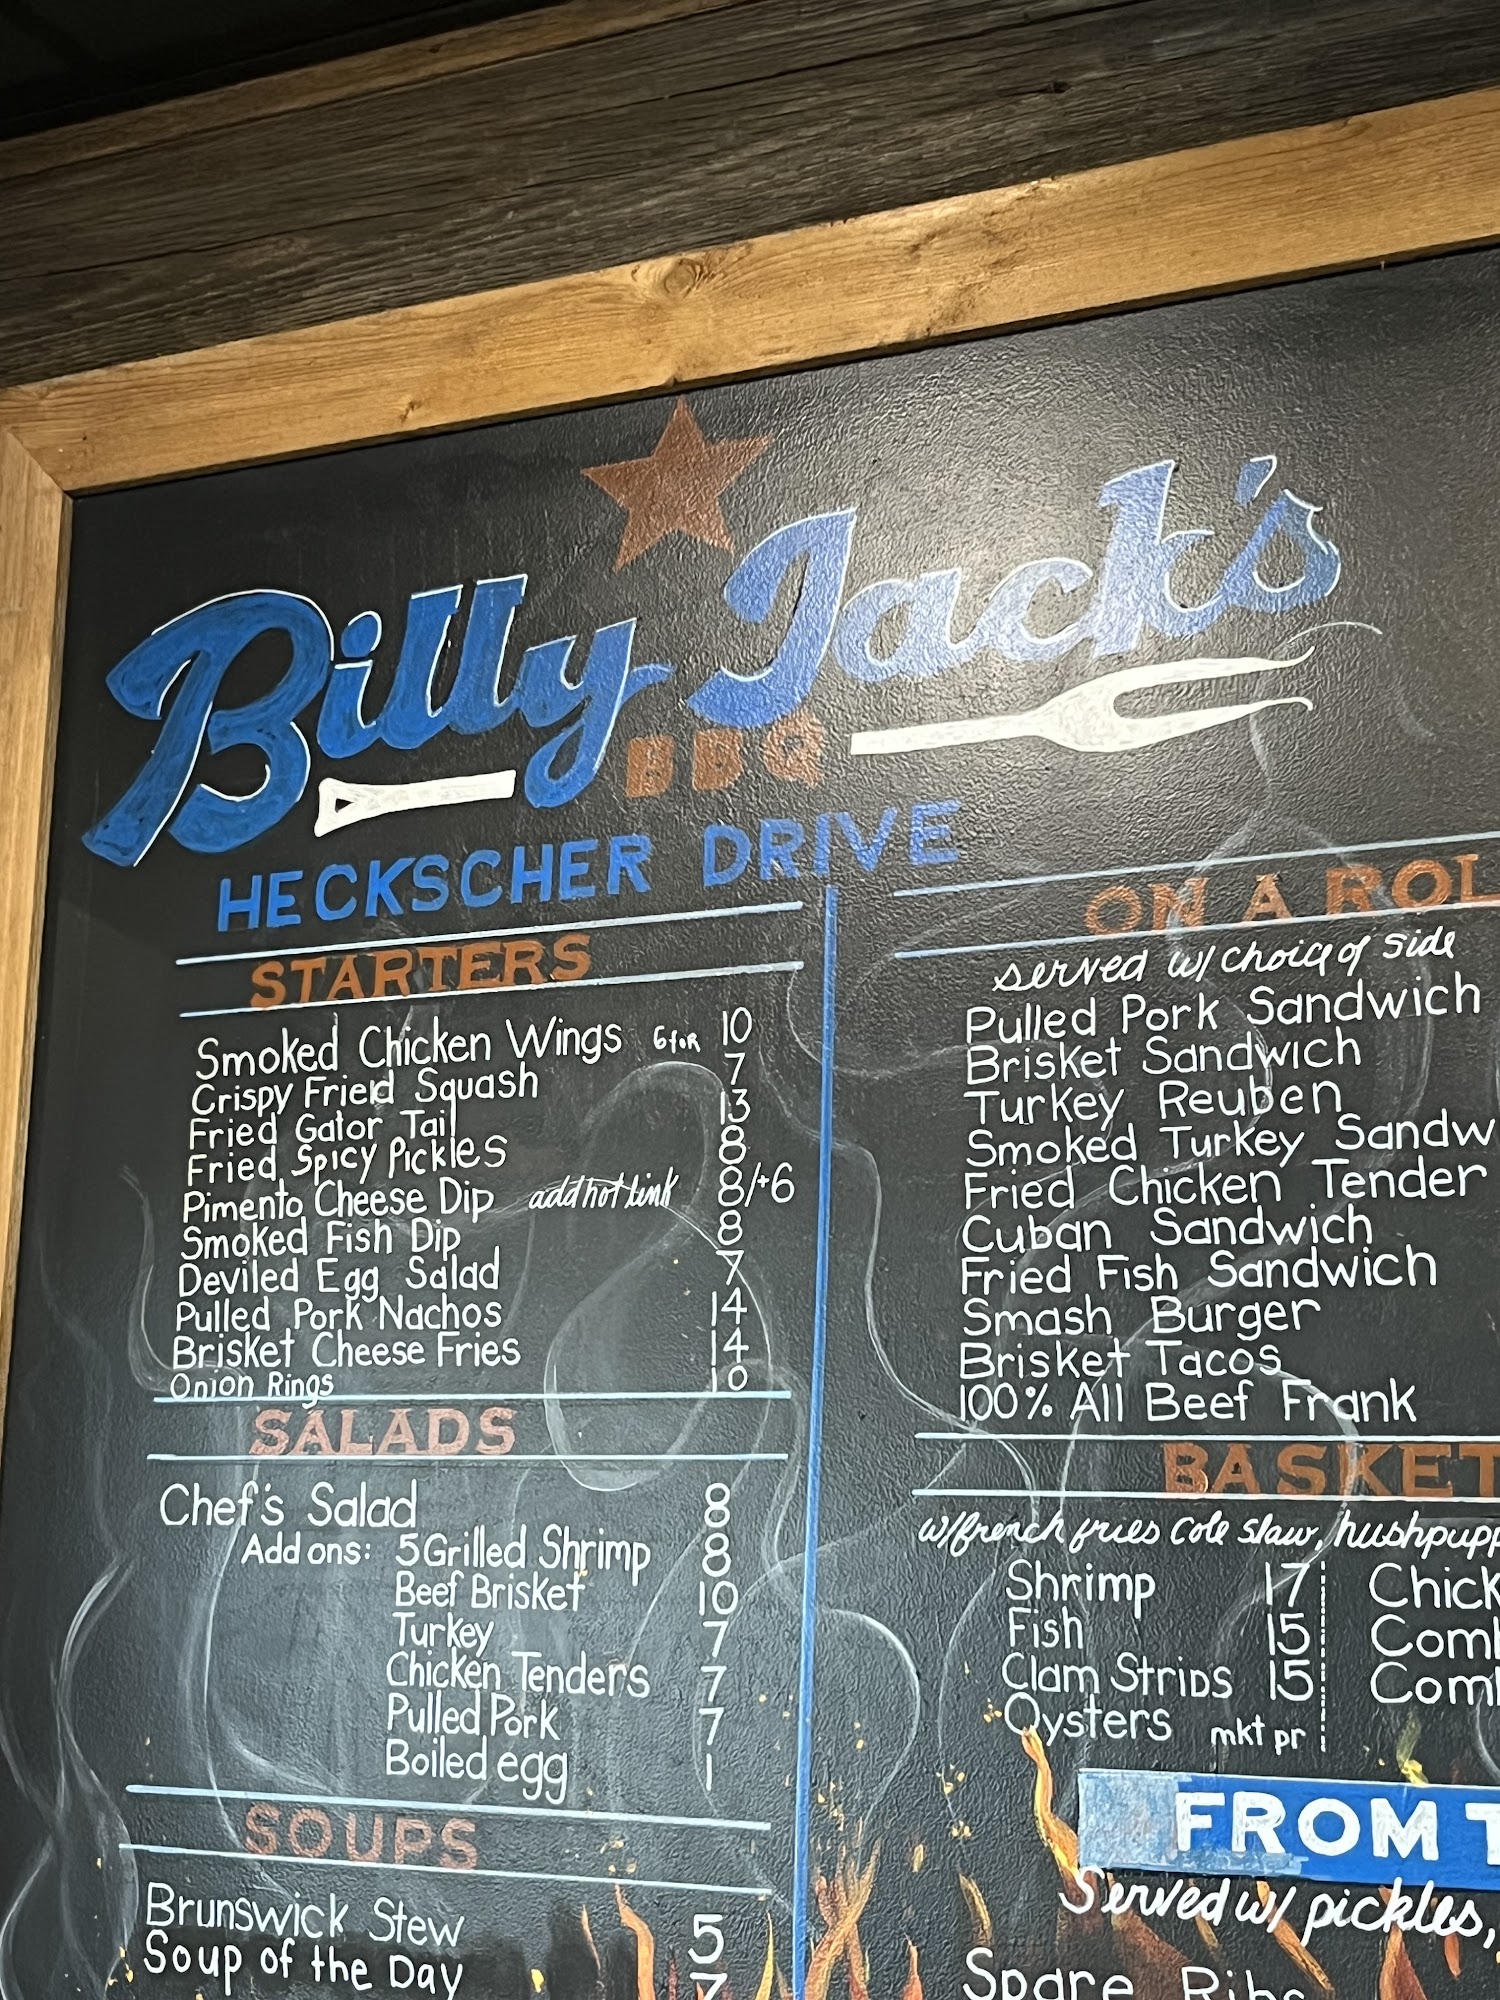 Billy Jack's
BBQ
HECKSCHER DRIVE
STARTERS
Smoked Chicken Wings 6 for 10
Crispy Fried Squash 7
Fried Gator Tail 13
Fried Spicy Pickles 8
Pimento Cheese Dip add hot link 8/+6
Smoked Fish Dip 8
Deviled Egg Salad 7
Pulled Pork Nachos 14
Brisket Cheese Fries 14
Onion Rings 10
SALADS
Chef's Salad 8
Add ons: 5 Grilled Shrimp 8
Beef Brisket 10
Turkey 7
Chicken Tenders 7
Pulled Pork 7
Boiled egg 1
SOUPS
Brunswick Stew 5
Soup of the Day 7
ON A ROL
served w/ choice of side
Pulled Pork Sandwich
Brisket Sandwich
Turkey Reuben
Smoked Turkey Sandw
Fried Chicken Tender
Cuban Sandwich
Fried Fish Sandwich
Smash Burger
Brisket Tacos
100% All Beef Frank
BASKET
w/french fries cole slaw, hushpupp
Shrimp 17 Chick
Fish 15 Com
Clam Strips 15 Com
Oysters mkt pr
FROM T
Served w/ pickles,
Spare Ribs